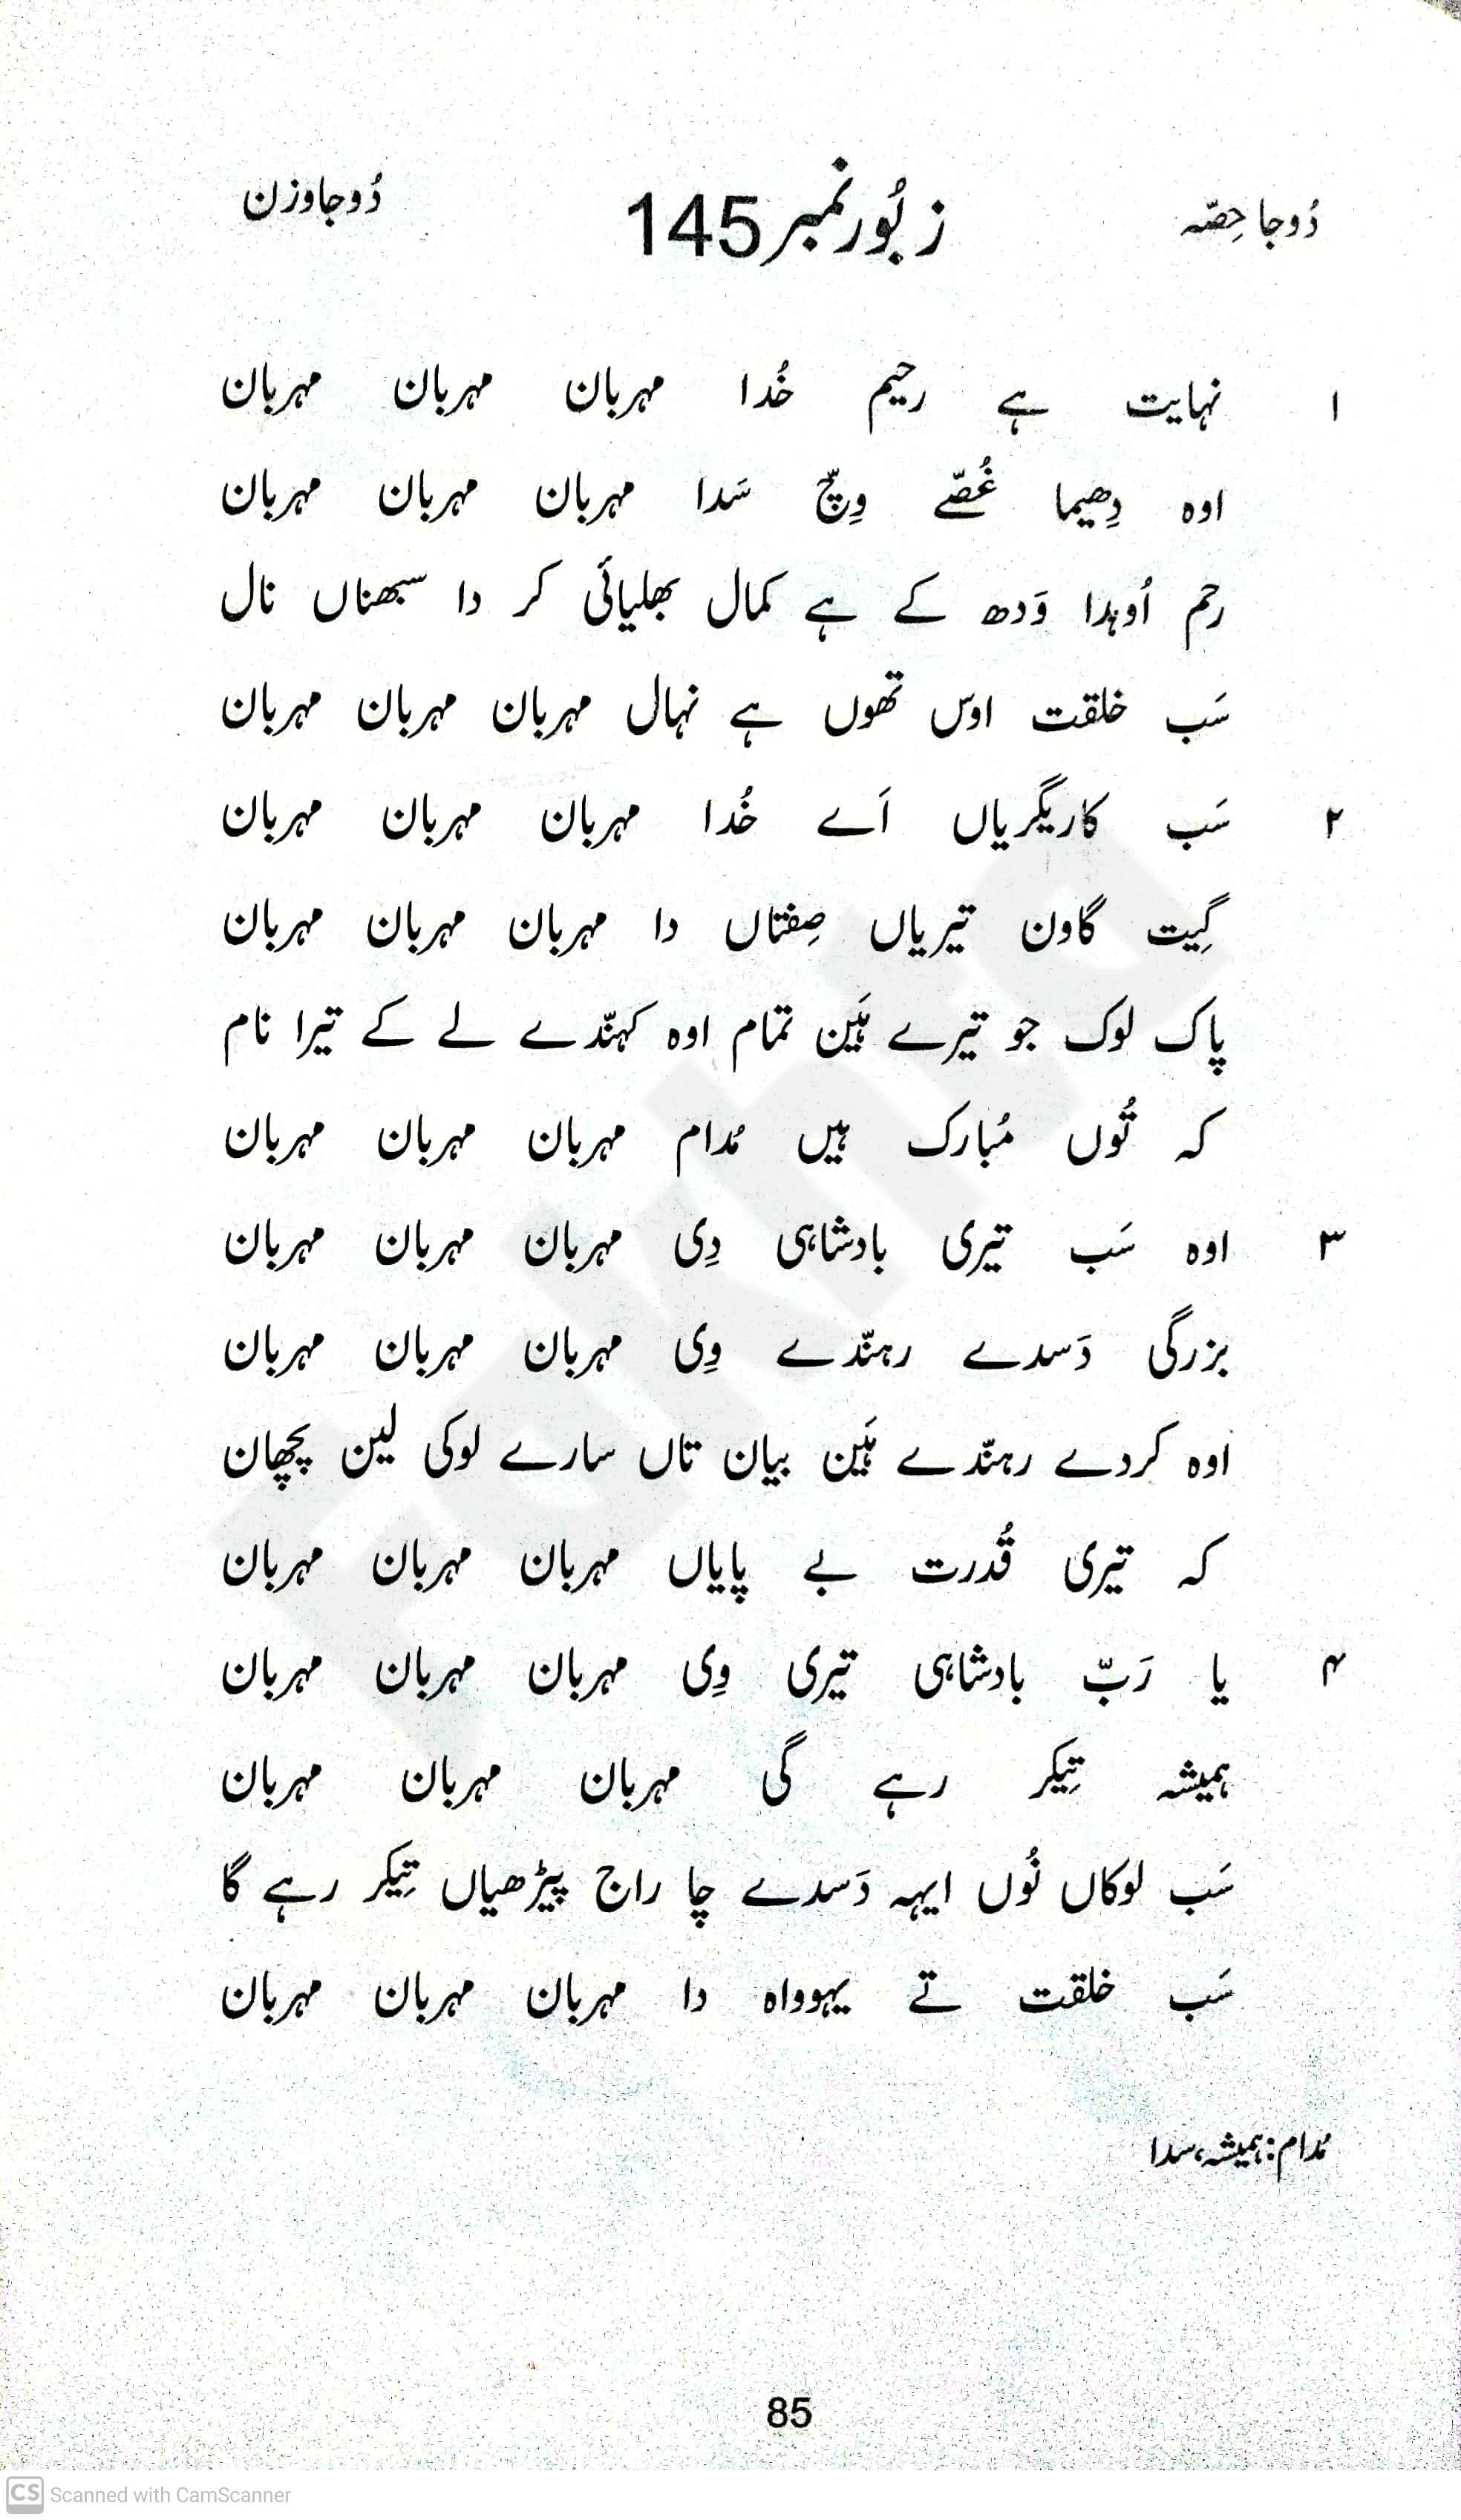 دُوجا حِصّہ زبُور نمبر 145 دُوجا وزن
۱ نہایت ہے رحیم خُدا مہربان مہربان مہربان
اوہ دِھیما غُصّے وِچّ سَدا مہربان مہربان مہربان
رحم اُوہدا وَدھ کے ہے کمال بھلیائی کر دا سبھناں نال
سَب خلقت اوس تھوں ہے نہال مہربان مہربان مہربان
۲ سَب کاریگریاں اَے خُدا مہربان مہربان مہربان
گِیت گاون تیریاں صِفتاں دا مہربان مہربان مہربان
پاک لوک جو تیرے ہَین تمام اوہ کہندے لے کے تیرا نام
کہ تُوں مُبارک ہیں مُدام مہربان مہربان مہربان
۳ اوہ سَب تیری بادشاہی دِی مہربان مہربان مہربان
بزرگی دَسدے رہندے وِی مہربان مہربان مہربان
اوہ کردے رہندے ہَین بیان تاں سارے لوکی لین پچھان
کہ تیری قُدرت بے پایاں مہربان مہربان مہربان
۴ یا رَبّ بادشاہی تیری وِی مہربان مہربان مہربان
ہمیشہ تِیکر رہے گی مہربان مہربان مہربان
سَب لوکاں نُوں ایہہ دَسدے چا راج پیڑھیاں تِیکر رہے گا
سَب خلقت تے یہوواہ دا مہربان مہربان مہربان
مُدام: ہمیشہ، سدا
85
CS Scanned with CamScanner